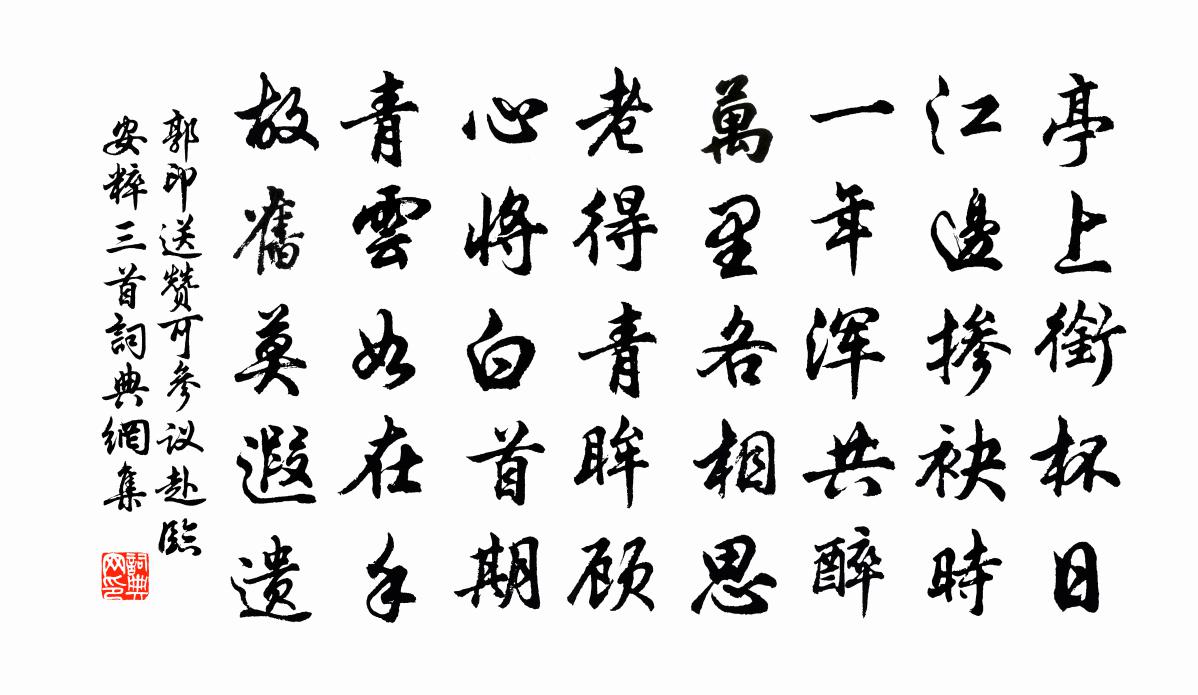 亭上銜杯日
江邊掺袂時
一年浑共醉
萬里各相思
老得青眸顾
心将白首期
青雲如在手
故舊莫遐遗
郭印送赞可參议赴臨
安粹三首詞典網集
詞典网印